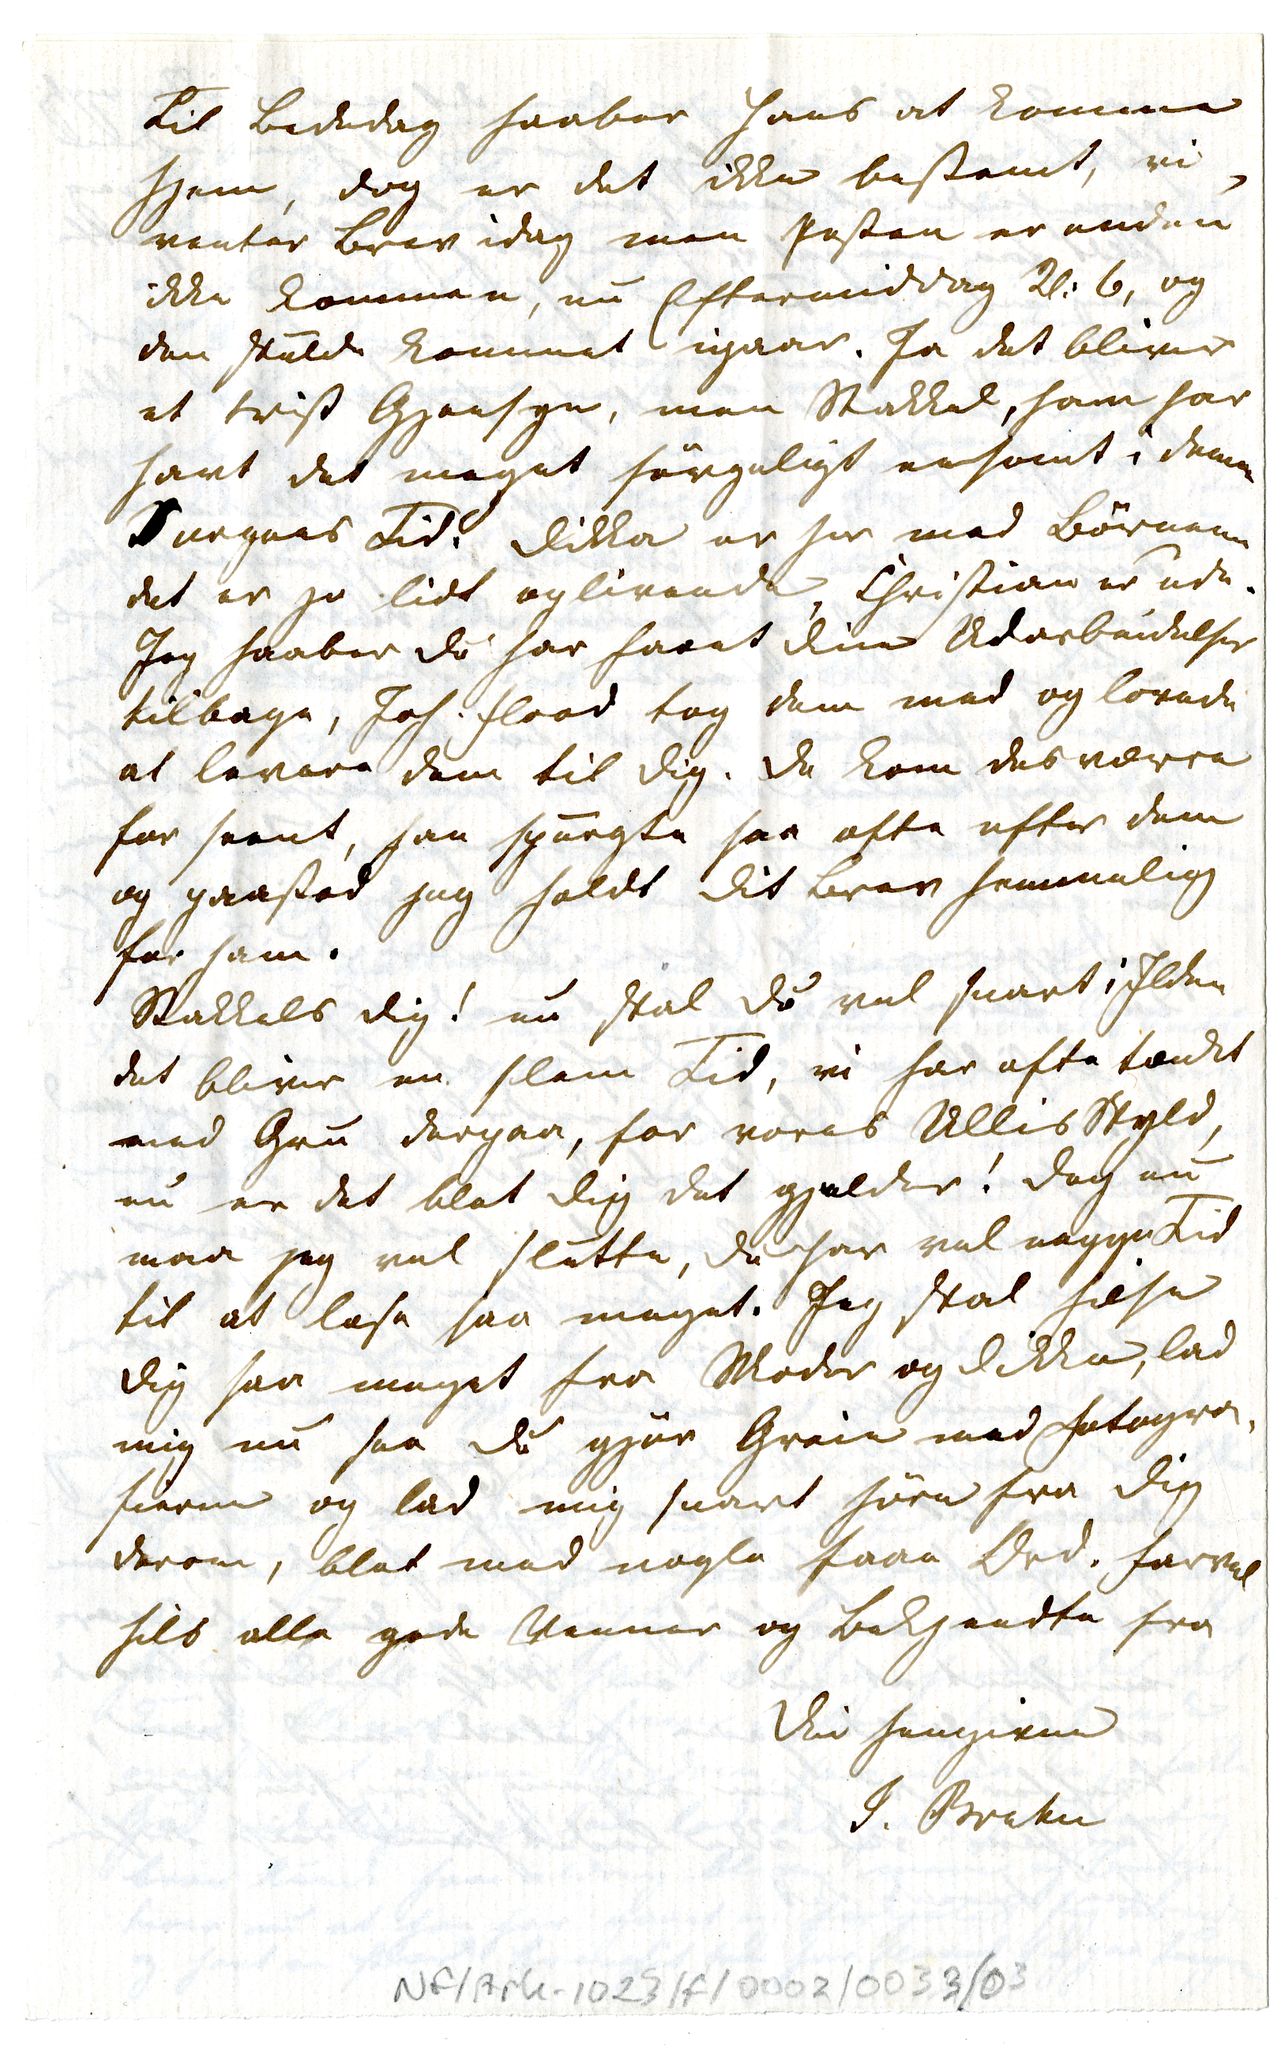 Til Bededag haaber Hans at komme
hjem, dog er det ikke bestemt, vi
venter Brev idag men Posten er endnu
ikke kommen, nu Eftermiddag Kl: 6, og
den skulde kommet igaar. Ja det bliver
et trist Gjensyn, men Stakkel, han har
havt det meget sörgeligt ensomt i denne
Sorgens Tid. Dikka er her med Börnene
det er jo lidt oplivende, Christian er ude.
Jeg haaber du har faaet dine Udarbeidelser
tilbage, Joh. Flood tog dem med og lovede
at levere dem til dig. De kom desværre
for seent, han spurgte saa ofte efter dem
og paastod jeg holdt dit Brev hemmelig
for ham.
Stakkels dig! nu skal du vel snart i Ilden
det bliver en slem Tid, vi har ofte tænkt
med Gru derpaa, for vores Ullis Skyld,
nu er det blot dig det gjelder! Dog nu
maa jeg vel slutte, du har vel neppe Tid
til at læse saa meget. Jeg skal hilse
dig saa meget fra Moder og Dikka, lad
mig nu see du gjör Grein med Fotogra-
fierne og lad mig snart höre fra dig
derom, blot med nogle faae Ord. Farvel
hils alle gode Venner og Bekjendte fra
Din hengivne
J. Brekn
NF/Ark-1023/F/0002/0033/03